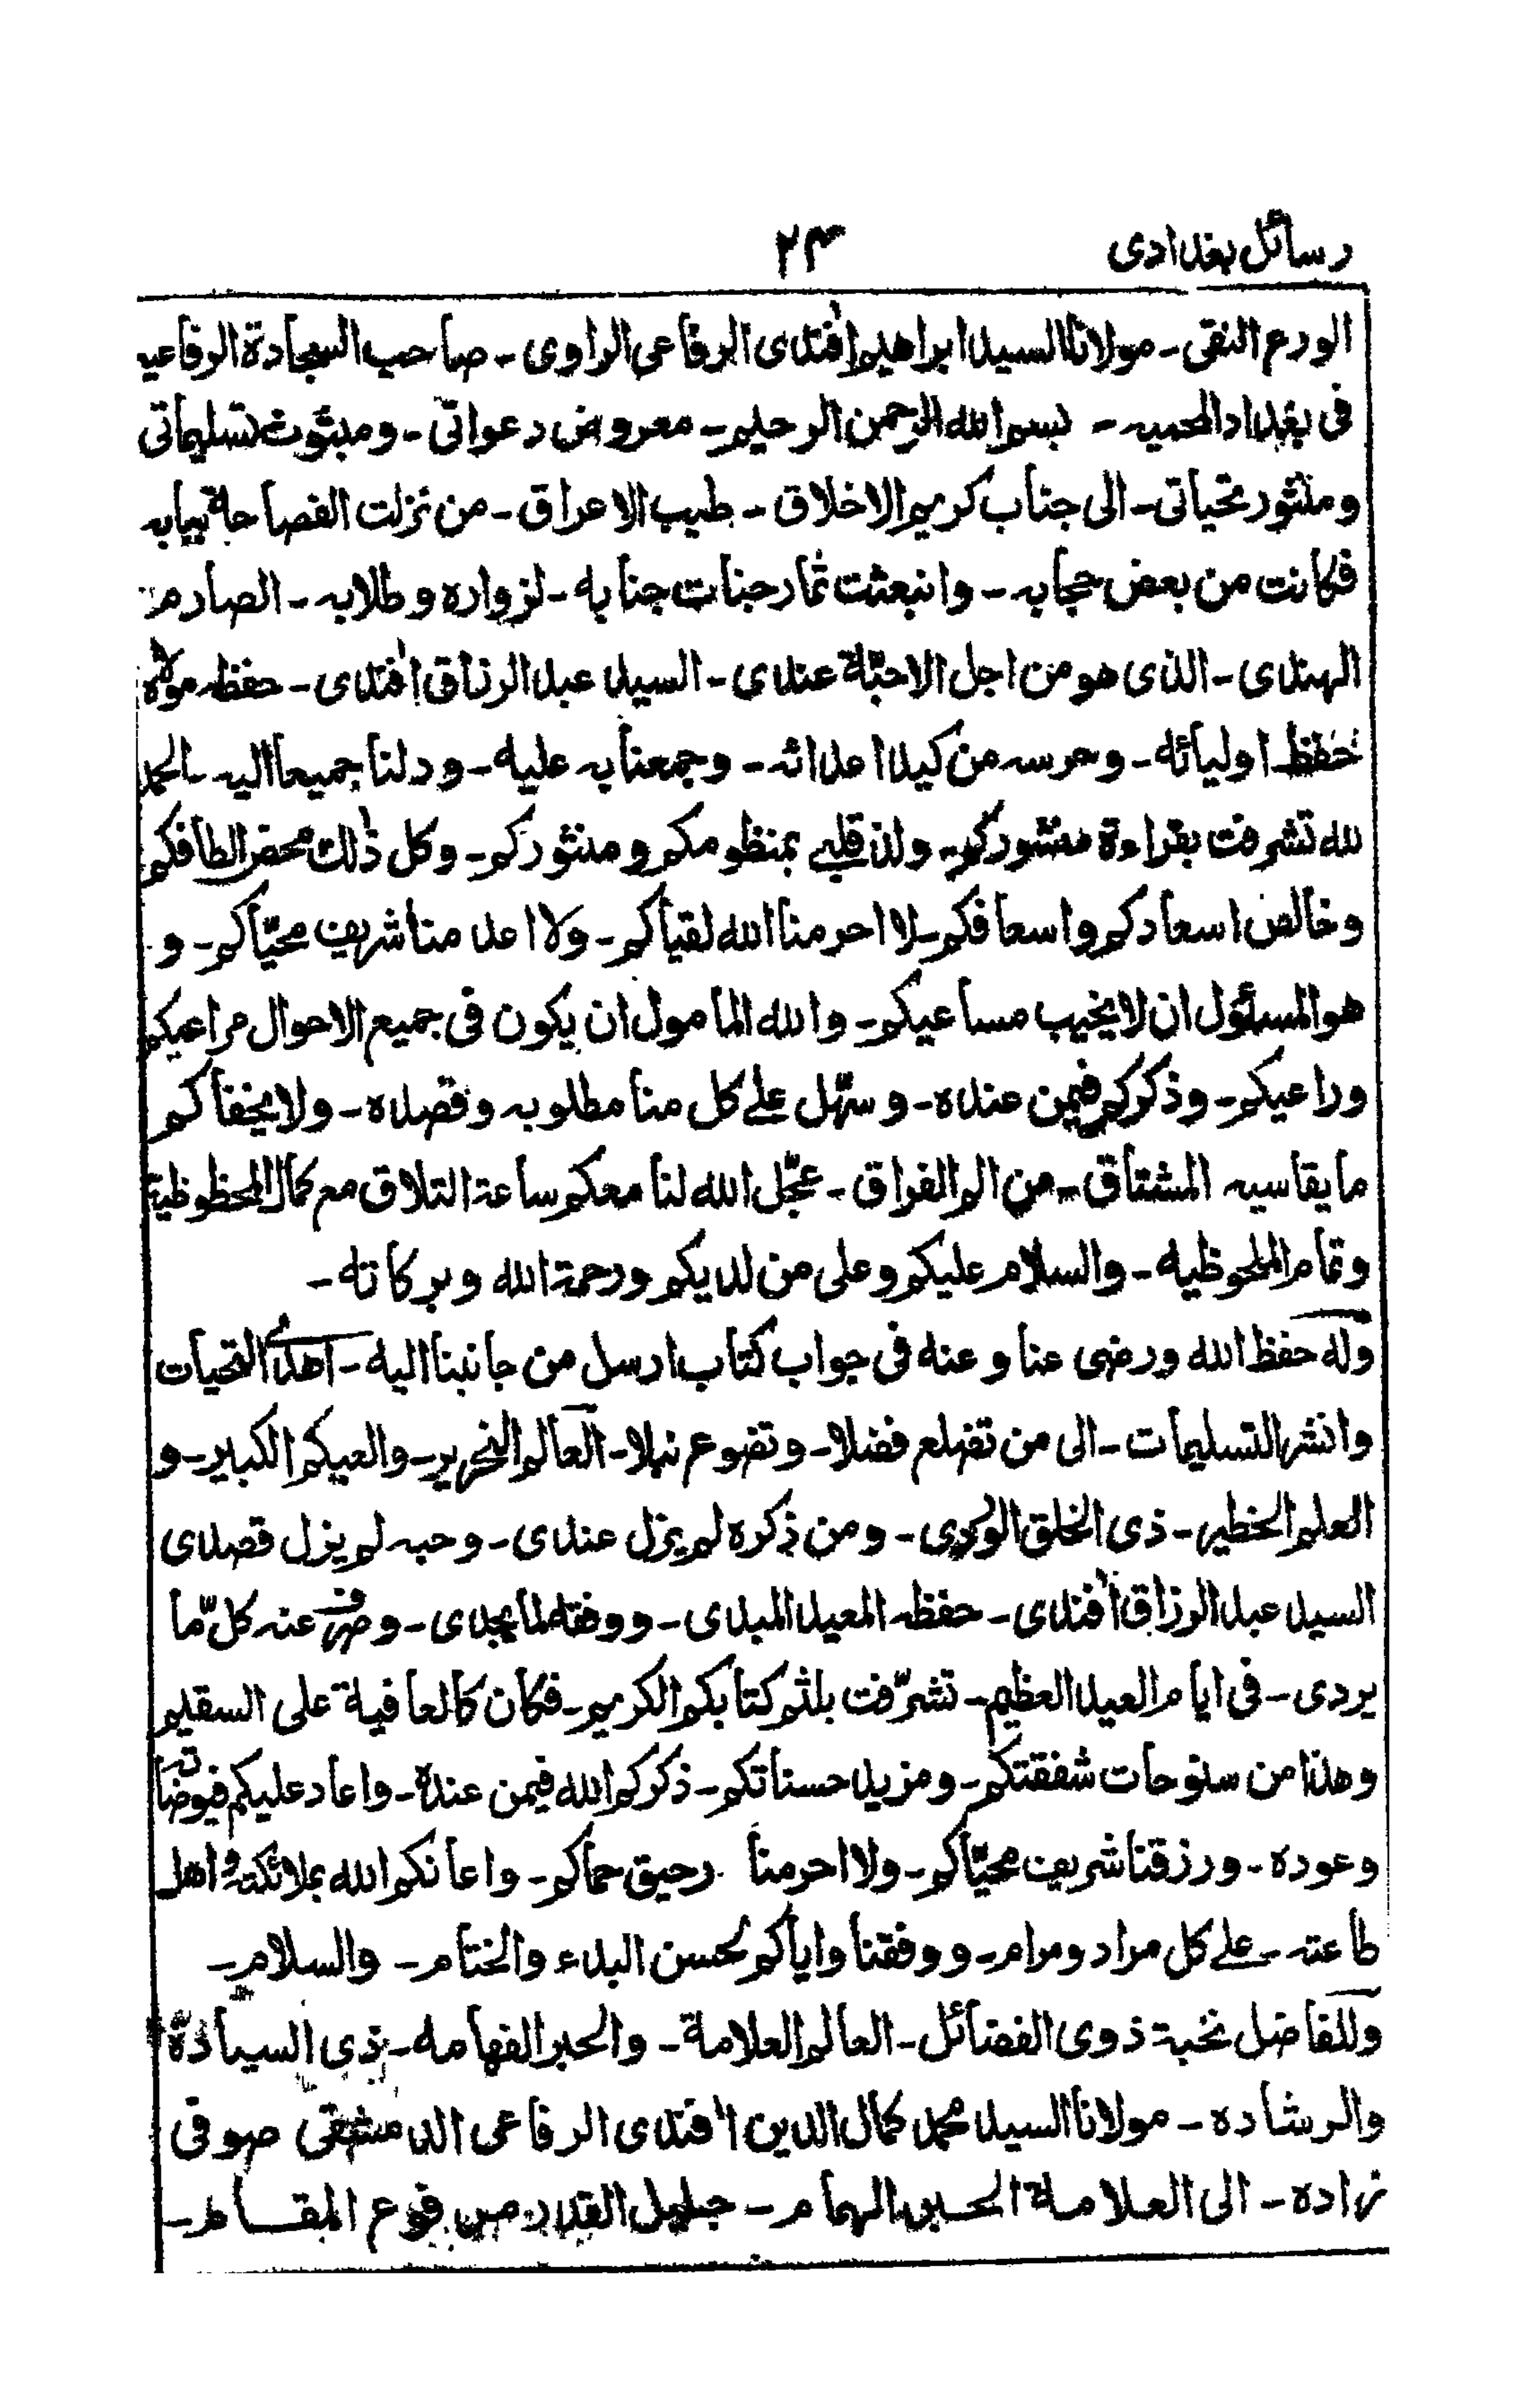 رسائل بغدادی ۲۴
الورع النقی ـ مولانا السید ابراهیم افندی الرفاعی الراوی ـ صاحب السجادة الرفاعیه
فی بغداد المحمیه ـ بسم الله الرحمن الرحیم ـ معروض دعواتی ـ ومبثوث تسلیماتی
ومنثور تحیاتی ـ الی جناب کریم الاخلاق ـ طیب الاعراق ـ من نزلت الفصاحة ببابه
فکانت من بعض حجابه ـ وانبعثت ثمار جنات جنابه ـ لزواره وطلابه ـ الصارم
الهندی ـ الذی هو من اجل الاحبّة عندی ـ السید عبد الرزاق افندی ـ حفظه مولاه
حفظ اولیائه ـ وحرسه من کید اعدائه ـ وجمعنا به علیه ـ ودلنا جمیعا الیه ـ الحمد
لله تشرفت بقراءة منشورکم ـ ولذ قلبی بمنظومکم ومنثورکم ـ وکل ذلک محض الطافکم
وخالص اسعادکم واسعافکم ـ لا احرمنا الله لقیاکم ـ ولا اعد منا شریف محیّاکم ـ و
هو المسئول ان لا یخیب مساعیکم ـ والله المامول ان یکون فی جمیع الاحوال مراعیکم
وراعیکم ـ وذکرکم فیمن عنده ـ وسهّل علی کل منا مطلوبه وقصده ـ ولا یخفاکم
ما یقاسیه المشتاق ـ من الم الفراق ـ عجّل الله لنا معکم ساعة التلاق مع کمال المحظوظیة
وتمام الملحوظیه ـ والسلام علیکم وعلی من لدیکم ورحمة الله وبرکاته ـ
وله حفظ الله ورضی عنا وعنه فی جواب کتاب ارسل من جانبنا الیه ـ اهدی التحیات
وانشر التسلیمات ـ الی من تضلع فضلا ـ وتضوع نبلا ـ العالم النحریر ـ والعیکم الکبیر ـ و
العلم الخطیر ـ ذی الخلق الوردی ـ ومن ذکره لم یزل عندی ـ وحبه لم یزل قصدی
السید عبد الرزاق افندی ـ حفظه المعید المبدی ـ ووفقه لما یجدی ـ وصرف عنه کلّ ما
یردی ـ فی ایام العید العظیم ـ تشرّفت بلثم کتابکم الکریم ـ فکان کالعافیة علی السقیم
وهذا من سنوحات شفقتکم ـ ومزید حسناتکم ـ ذکرکم الله فیمن عنده ـ واعاد علیکم فیوضاته
وعوده ـ ورزقنا شریف محیّاکم ـ ولا احرمنا رحیق حماکم ـ واعانکم الله بملائکته واهل
طاعته ـ علی کل مراد ومرام ـ ووفقنا وایاکم لحسن البدء والختام ـ والسلام ـ
وللفاضل نخبة ذوی الفضائل ـ العالم العلامة ـ والحبر الفهامه ـ ذی السیادة
والرشاده ـ مولانا السید محمد کمال الدین افندی الرفاعی الدمشقی صوفی
زاده ـ الی العلامة الحبر الهمام ـ جلیل القدر مرفوع المقام ـ